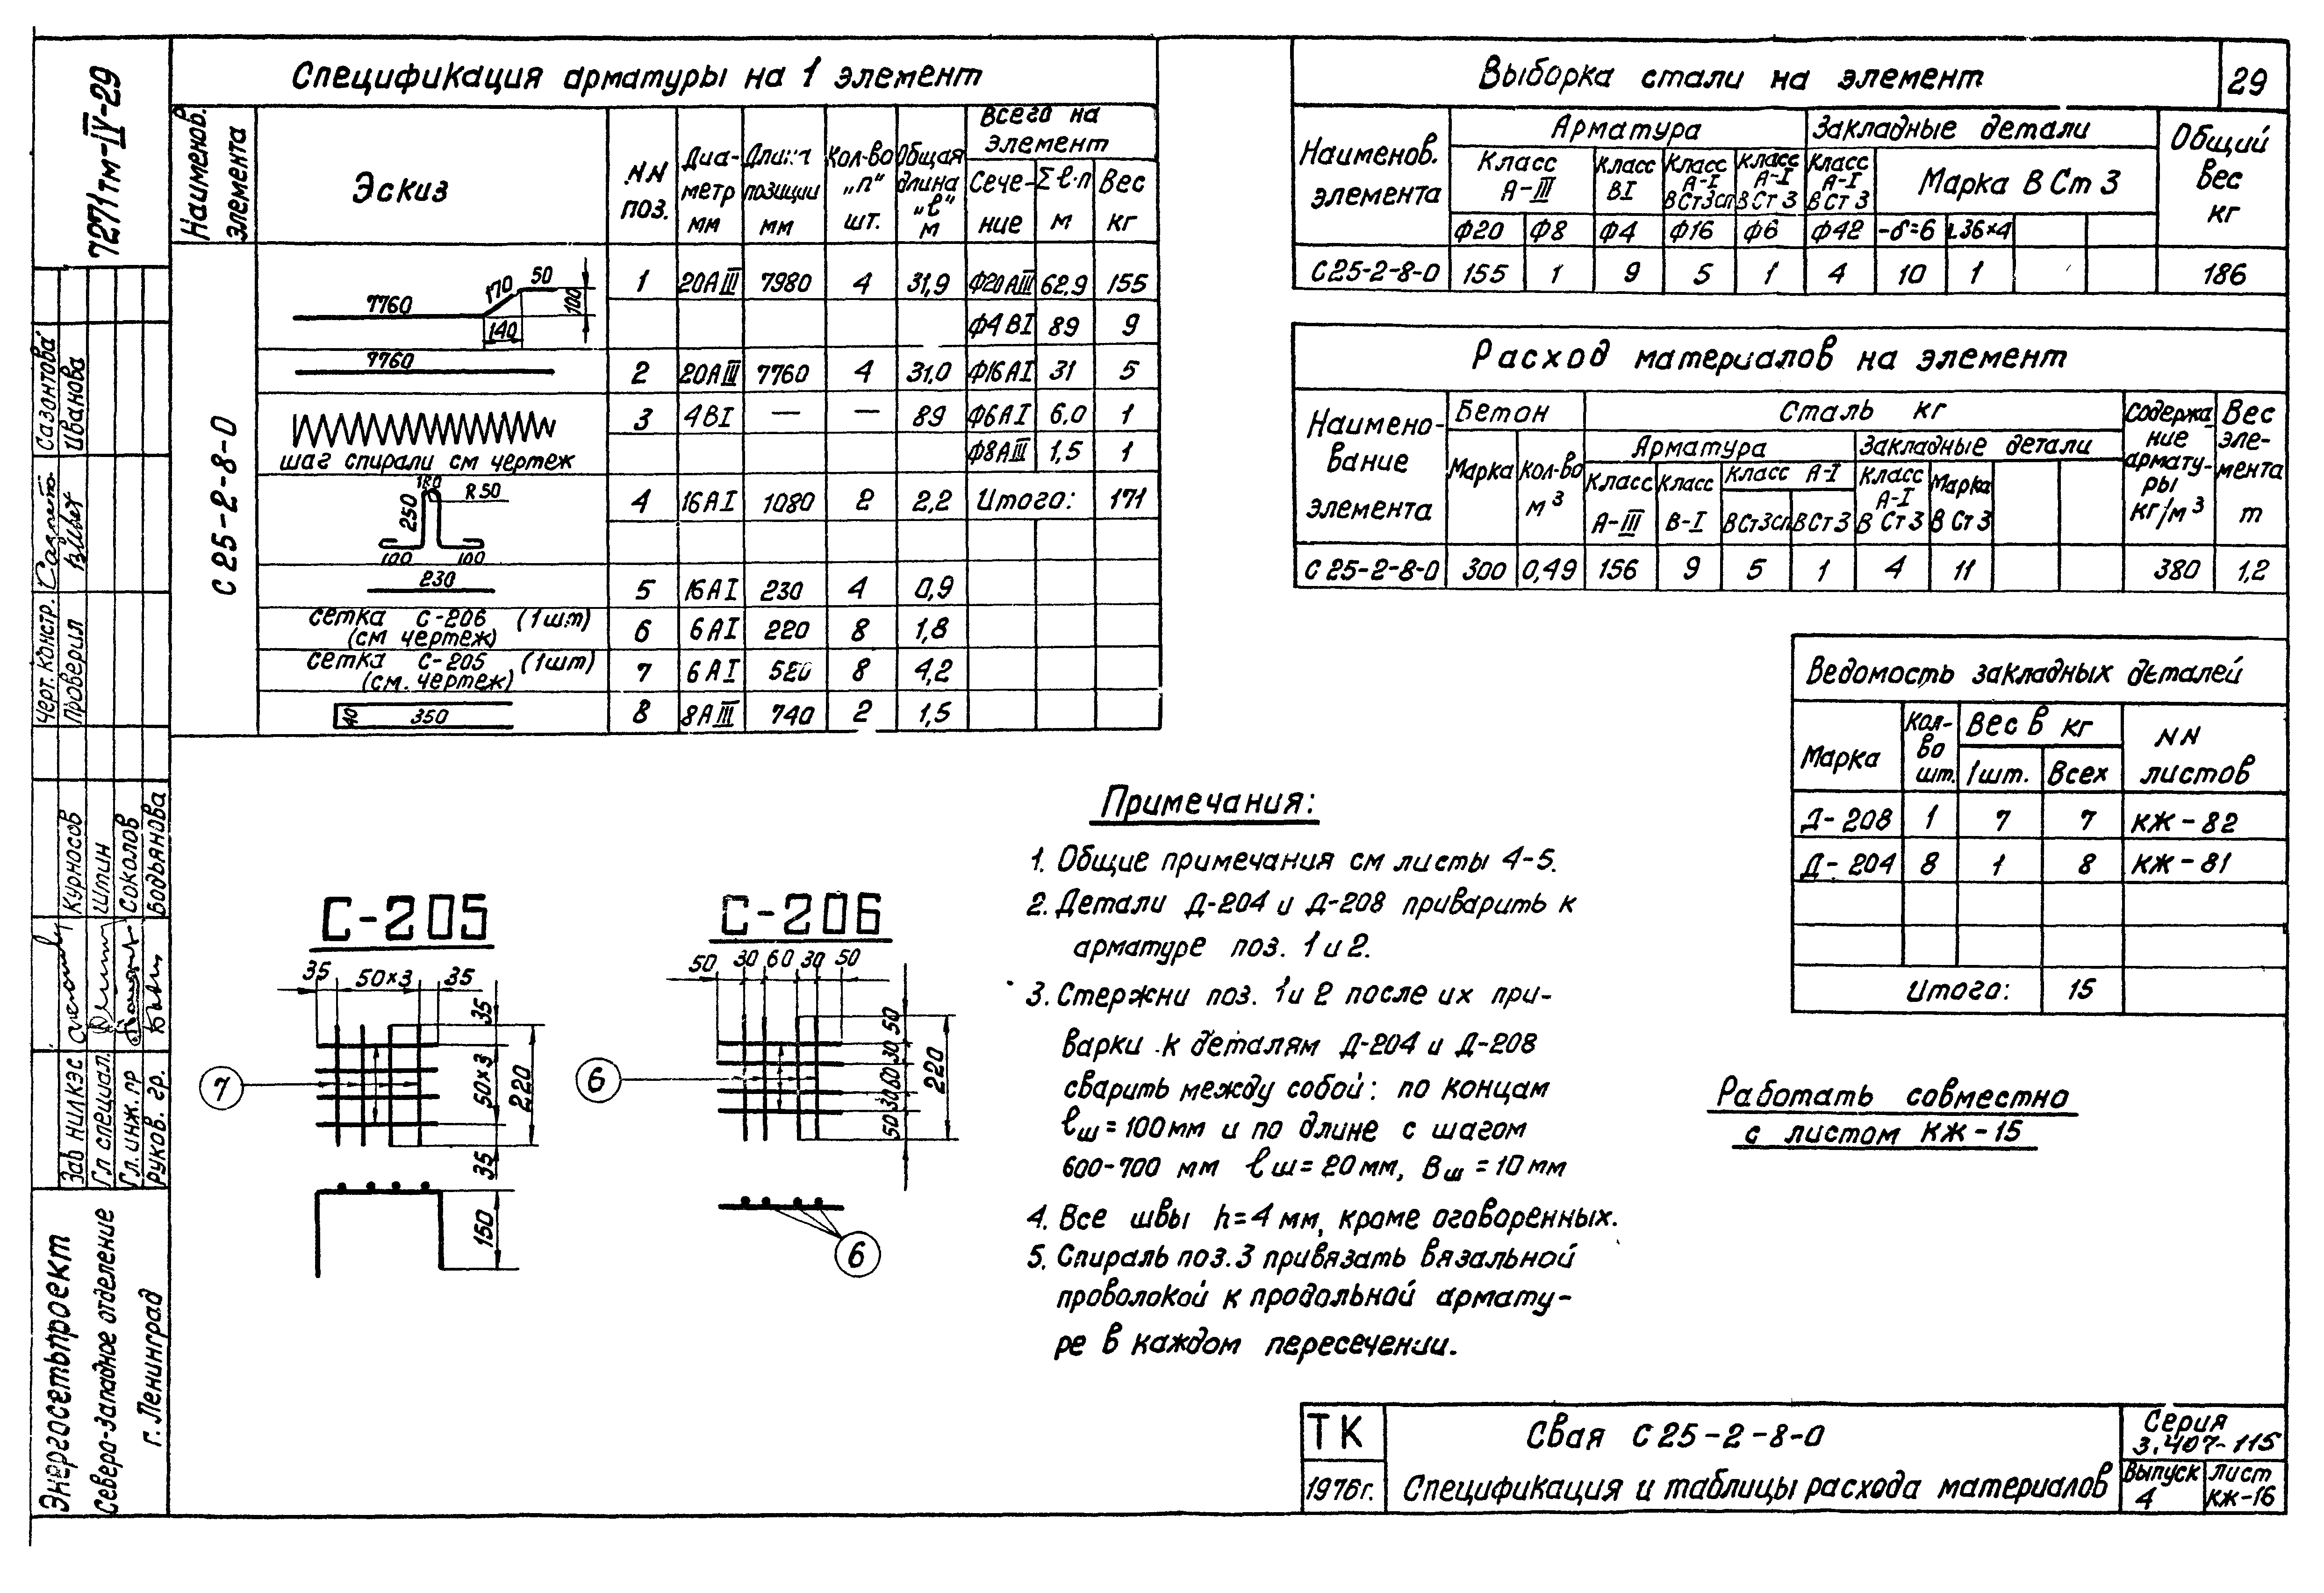 7271тм-IV-29
29
Спецификация арматуры на 1 элемент
Наименов. элемента
Эскиз
NN поз.
Диаметр мм
Длина позиции мм
Кол-во „п" шт.
Общая длина „ℓ" м
Всего на элемент
Сечение
Σℓ·п м
Вес кг
С 25-2-8-0
7760 170 50 140 100
1 20АIII 7980 4 31,9 Ф20АIII 62,9 155
Ф4ВI 89 9
7760
2 20АIII 7760 4 31,0 Ф16АI 31 5
3 4ВI — — 89 Ф6АI 6,0 1
шаг спирали см чертеж
Ф8АIII 1,5 1
180 R50 250 100 100
4 16АI 1080 2 2,2 Итого: 171
230
5 16АI 230 4 0,9
сетка С-206 (1шт)
(см чертеж)
6 6АI 220 8 1,8
сетка С-205 (1шт)
(см. чертеж)
7 6АI 520 8 4,2
40 350
8 8АIII 740 2 1,5
Выборка стали на элемент
Наименов. элемента
Арматура
Закладные детали
Общий вес кг
Класс А-III
Класс ВI
Класс А-I ВСт3сп
Класс А-I ВСт3
Класс А-I ВСт3
Марка ВСт3
Ф20 Ф8 Ф4 Ф16 Ф6 Ф42 -δ=6 L36×4
С25-2-8-0 155 1 9 5 1 4 10 1 186
Расход материалов на элемент
Наименование элемента
Бетон
Сталь кг
Содержание арматуры кг/м³
Вес элемента т
Марка
Кол-во м³
Арматура
Закладные детали
Класс А-III
Класс В-I
Класс А-I
ВСт3сп ВСт3
Класс А-I ВСт3
Марка ВСт3
С 25-2-8-0 300 0,49 156 9 5 1 4 11 380 1,2
Ведомость закладных деталей
Марка
Кол-во шт.
Вес в кг
1шт. Всех
NN листов
Д-208 1 7 7 КЖ-82
Д-204 8 1 8 КЖ-81
Итого: 15
С-205
35 50×3 35
35 50×3 35
220
7
150
С-206
50 30 60 30 50
50 30 60 30 50
220
6
6
Примечания:
1. Общие примечания см листы 4-5.
2. Детали Д-204 и Д-208 приварить к
арматуре поз. 1 и 2.
3. Стержни поз. 1 и 2 после их при-
варки к деталям Д-204 и Д-208
сварить между собой: по концам
ℓш=100мм и по длине с шагом
600-700 мм ℓш=20мм, Вш=10мм
4. Все швы h=4мм, кроме оговоренных.
5. Спираль поз.3 привязать вязальной
проволокой к продольной армату-
ре в каждом пересечении.
Работать совместно
с листом КЖ-15
ТК
1976г.
Свая С25-2-8-0
Спецификация и таблицы расхода материалов
Серия
3.407-115
Выпуск
4
Лист
КЖ-16
Черт. констр. Сазонтова
Проверил Иванова
Зав НИЛКЭС Курносов
Гл специал. Шпин
Гл. инж. пр Соколов
Руков. гр. Бодьянова
Энергосетьпроект
Северо-Западное отделение
г. Ленинград